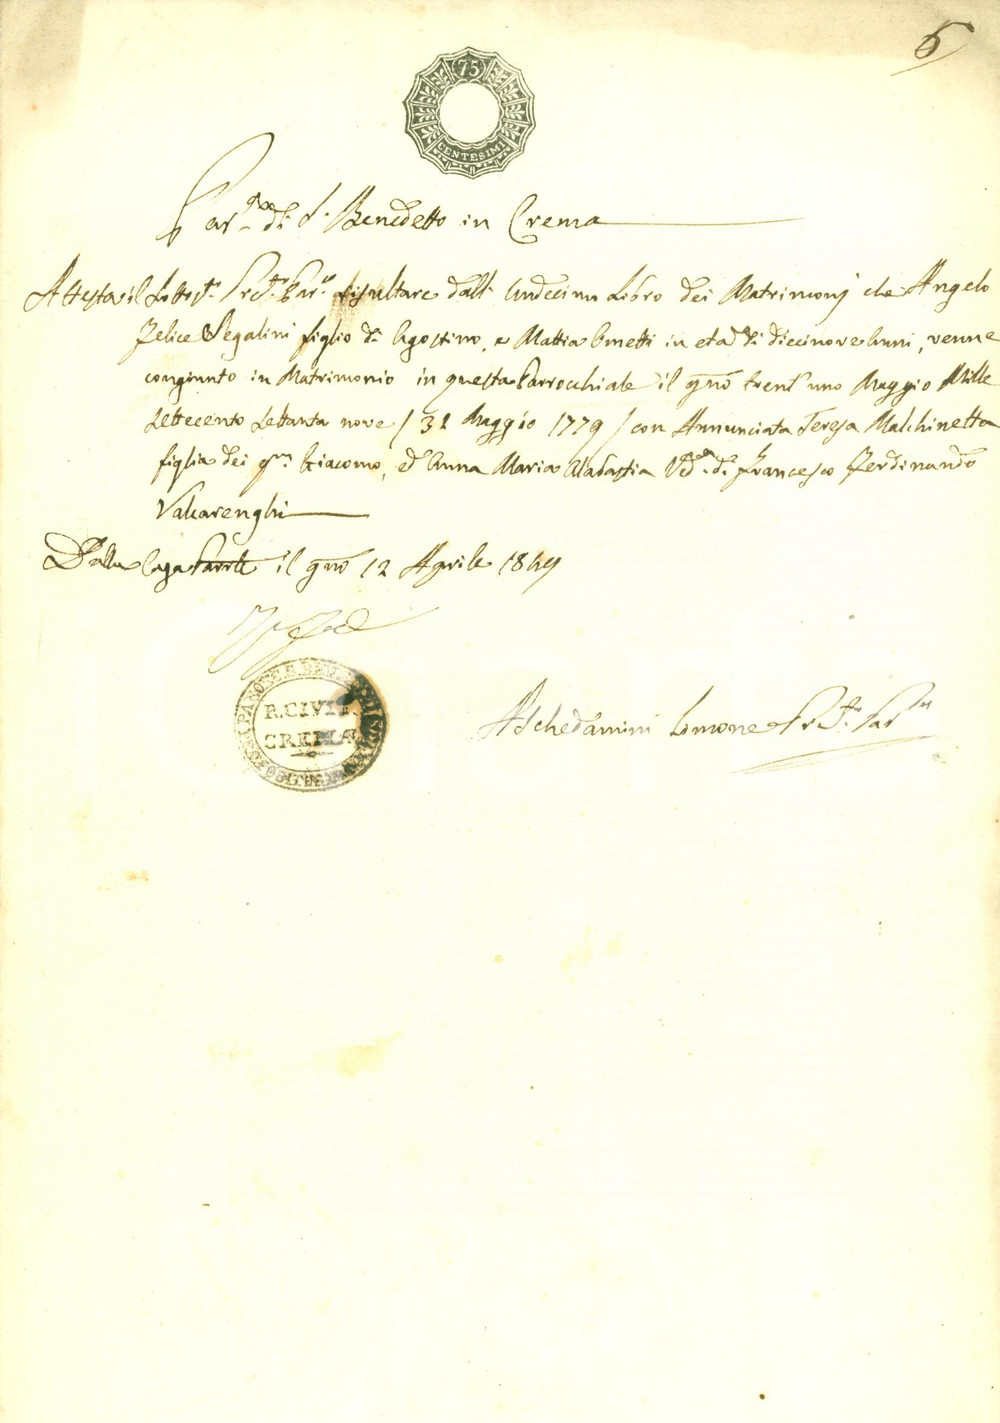 6
75
CENTESIMI
Par.a di S. Benedetto in Crema
Attesta il Sottos.to Pret.e Par.o risultare dall' Undecimo Libro dei Matrimonj che Angelo
Felice Segalini figlio di Agostino, e Mattia Ometti in età di diecinove Anni, venne
congiunto in Matrimonio in questa Parrocchiale il gno trent'uno Maggio Mille
Settecento Settanta nove / 31 Maggio 1779 / con Annunciata Teresa Malchinetta
figlia dei qm Giacomo, ed Anna Maria Ved.a di Francesco Ferdinando
Valcarenghi
Dalla Casa Parrle il gno 12 Aprile 1849
In fede
R. CIVIT.
CREMAE
Aschedamini Simone Pr.te Par.o